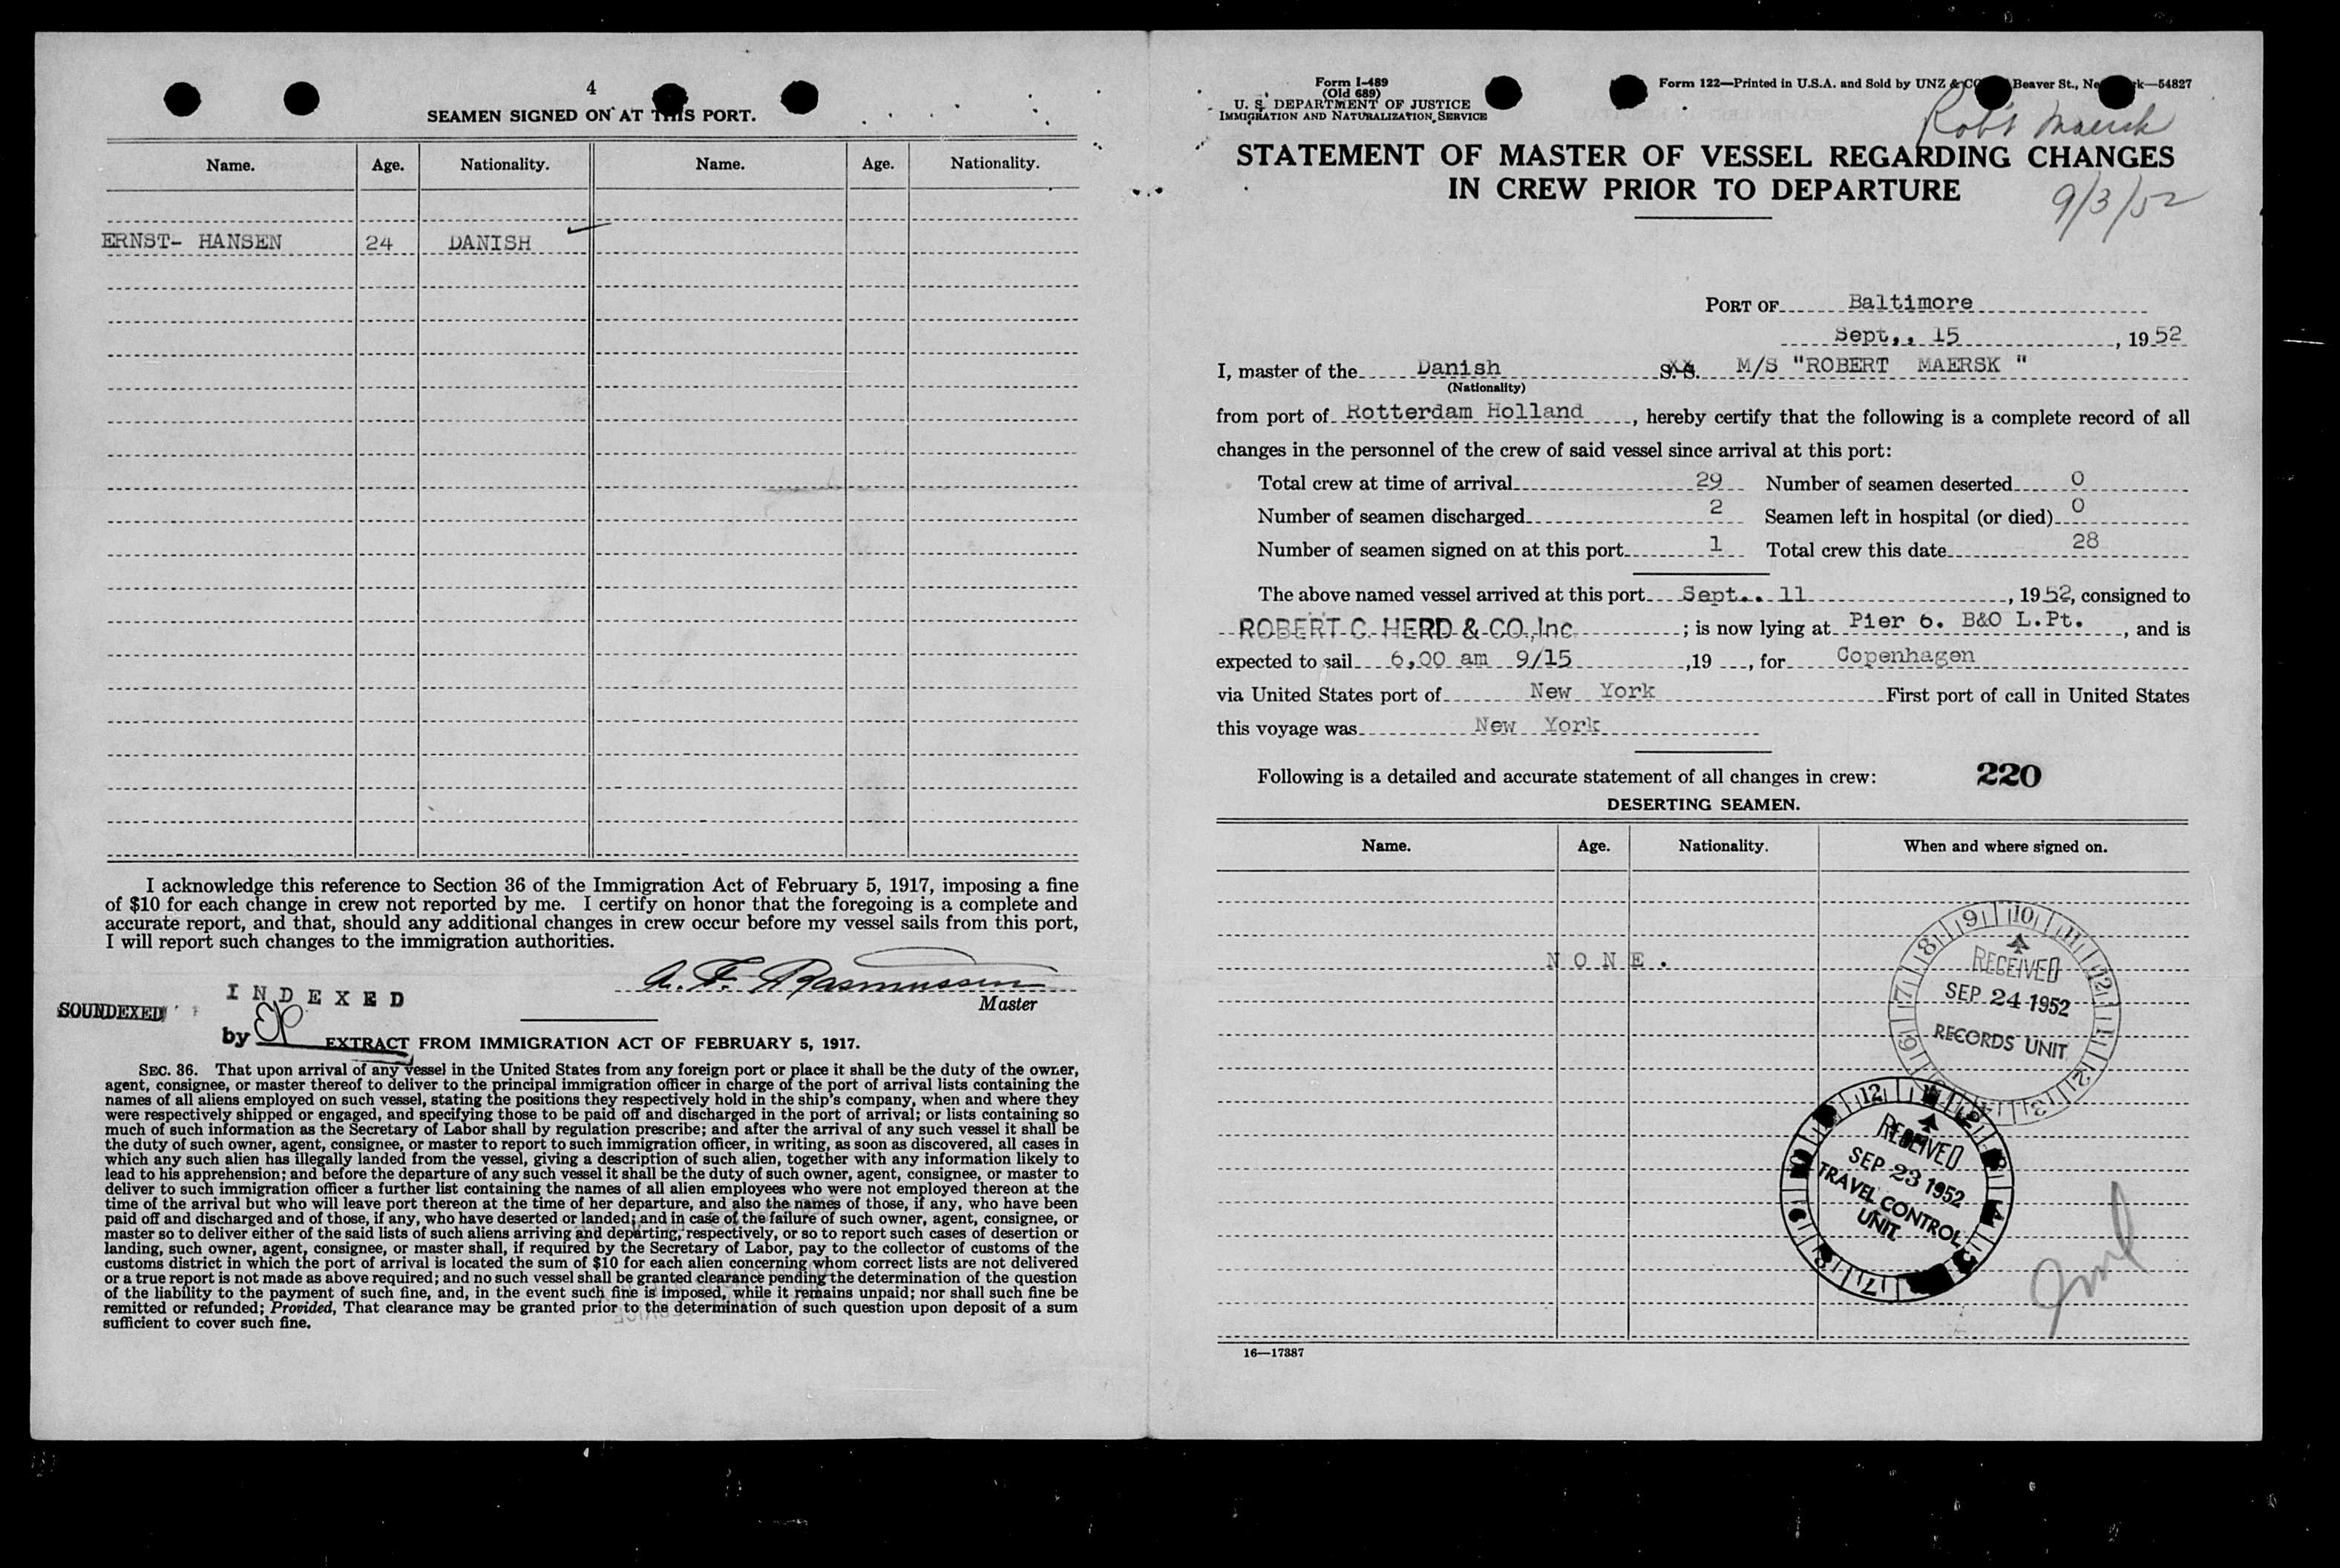 4
SEAMEN SIGNED ON AT THIS PORT.
Name. Age. Nationality. Name. Age. Nationality.
ERNST- HANSEN 24 DANISH
I acknowledge this reference to Section 36 of the Immigration Act of February 5, 1917, imposing a fine
of $10 for each change in crew not reported by me. I certify on honor that the foregoing is a complete and
accurate report, and that, should any additional changes in crew occur before my vessel sails from this port,
I will report such changes to the immigration authorities.
A. F. Rasmussen
Master
INDEXED
SOUNDEXED
by
EXTRACT FROM IMMIGRATION ACT OF FEBRUARY 5, 1917.
SEC. 36. That upon arrival of any vessel in the United States from any foreign port or place it shall be the duty of the owner,
agent, consignee, or master thereof to deliver to the principal immigration officer in charge of the port of arrival lists containing the
names of all aliens employed on such vessel, stating the positions they respectively hold in the ship's company, when and where they
were respectively shipped or engaged, and specifying those to be paid off and discharged in the port of arrival; or lists containing so
much of such information as the Secretary of Labor shall by regulation prescribe; and after the arrival of any such vessel it shall be
the duty of such owner, agent, consignee, or master to report to such immigration officer, in writing, as soon as discovered, all cases in
which any such alien has illegally landed from the vessel, giving a description of such alien, together with any information likely to
lead to his apprehension; and before the departure of any such vessel it shall be the duty of such owner, agent, consignee, or master to
deliver to such immigration officer a further list containing the names of all alien employees who were not employed thereon at the
time of the arrival but who will leave port thereon at the time of her departure, and also the names of those, if any, who have been
paid off and discharged and of those, if any, who have deserted or landed; and in case of the failure of such owner, agent, consignee, or
master so to deliver either of the said lists of such aliens arriving and departing, respectively, or so to report such cases of desertion or
landing, such owner, agent, consignee, or master shall, if required by the Secretary of Labor, pay to the collector of customs of the
customs district in which the port of arrival is located the sum of $10 for each alien concerning whom correct lists are not delivered
or a true report is not made as above required; and no such vessel shall be granted clearance pending the determination of the question
of the liability to the payment of such fine, and, in the event such fine is imposed, while it remains unpaid; nor shall such fine be
remitted or refunded; Provided, That clearance may be granted prior to the determination of such question upon deposit of a sum
sufficient to cover such fine.
Form I-489
(Old 689)
U. S. DEPARTMENT OF JUSTICE
IMMIGRATION AND NATURALIZATION SERVICE
Form 122—Printed in U.S.A. and Sold by UNZ & CO Beaver St., Ne k—54827
Robt Maersk
STATEMENT OF MASTER OF VESSEL REGARDING CHANGES
IN CREW PRIOR TO DEPARTURE
9/3/52
PORT OF Baltimore
Sept., 15, 1952
I, master of the Danish S.S. M/S "ROBERT MAERSK "
(Nationality)
from port of Rotterdam Holland, hereby certify that the following is a complete record of all
changes in the personnel of the crew of said vessel since arrival at this port:
Total crew at time of arrival 29 Number of seamen deserted 0
Number of seamen discharged 2 Seamen left in hospital (or died) 0
Number of seamen signed on at this port 1 Total crew this date 28
The above named vessel arrived at this port Sept.. 11, 1952, consigned to
ROBERT C. HERD & CO., Inc; is now lying at Pier 6. B&O L.Pt., and is
expected to sail 6,00 am 9/15, 19 , for Copenhagen
via United States port of New York First port of call in United States
this voyage was New York
Following is a detailed and accurate statement of all changes in crew: 220
DESERTING SEAMEN.
Name. Age. Nationality. When and where signed on.
NONE.
RECEIVED
SEP 24 1952
RECORDS UNIT
RECEIVED
SEP 23 1952
TRAVEL CONTROL
UNIT
16—17387